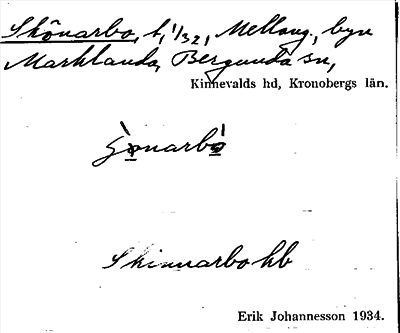 Skönarbo, t, 1/32, Mellang., byn
Marklanda, Bergunda sn,
Kinnevalds hd, Kronobergs län.
Skinnarbo hb
Erik Johannesson 1934.